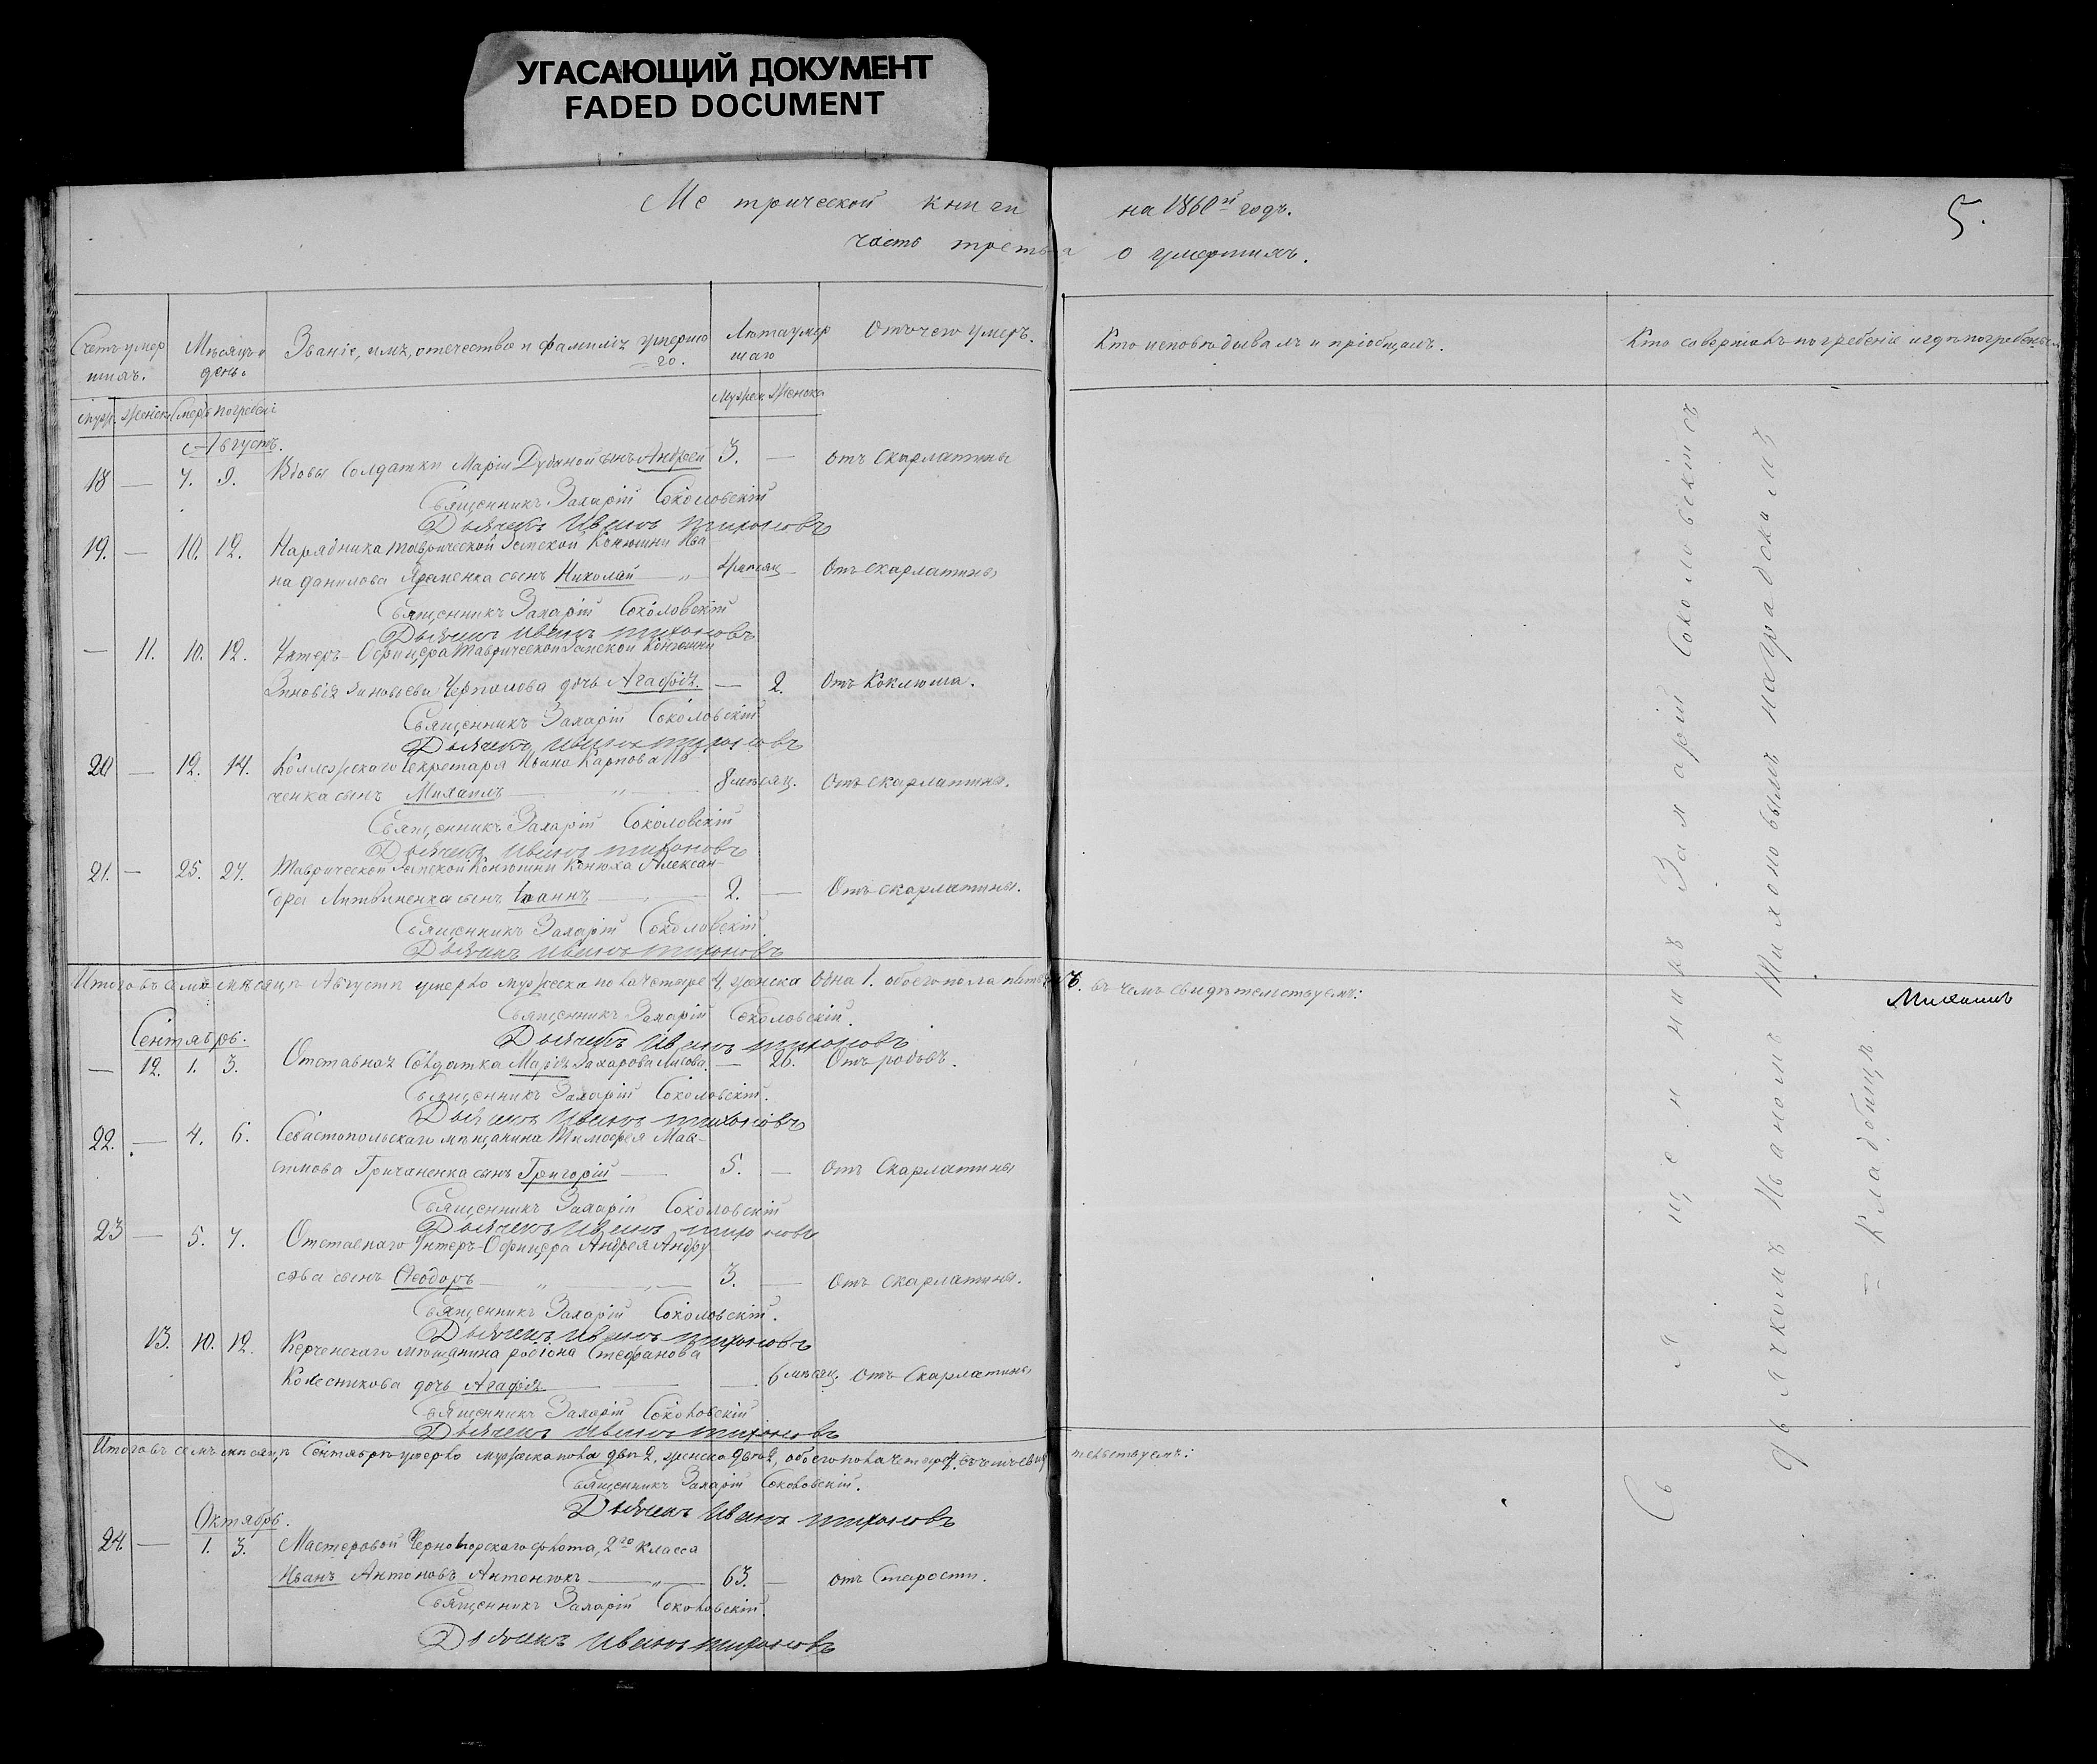 УГАСАЮЩИЙ ДОКУМЕНТ
FADED DOCUMENT
Метрической книги на 1860й годъ.
5.
часть третья о умершихъ.
Счетъ умершихъ.
Мѣсяцъ и день.
Званіе, имя, отечество и фамилія умершаго.
Лѣта умершаго
Отъ чего умеръ.
Кто исповѣдывалъ и пріобщалъ.
Кто совершалъ погребеніе и гдѣ погребены
Августъ.
18 — 7. 9. Вдовы Солдатки Маріи сынъ Андрей 3. — отъ скарлатины
Священникъ Захарій Соколовскій
Дьячекъ Иванъ Тихоновъ
19. — 10. 12. Нарядника Таврической Земской Конюшни Ива
на Данилова Яременка сынъ Николай —„ 4 мѣсяц — Отъ скарлатины
Священникъ Захарій Соколовскій
Дьячекъ Иванъ Тихоновъ
— 11. 10. 12. Унтеръ-Офицера Таврической Земской Конюшни
Зиновія Зиновьева дочь Агафія. — 2. Отъ Коклюша.
Священникъ Захарій Соколовскій
Дьячекъ Иванъ Тихоновъ
20 — 12. 14. Коллежскаго Секретаря Ивана Карпова
ченка сынъ Михаилъ — „ — 8 мѣсяц. Отъ скарлатины.
Священникъ Захарій Соколовскій
Дьячекъ Иванъ Тихоновъ
21. — 25. 27. Таврической Земской Конюшни Конюха Алексан-
дра Литвиненка сынъ Іоаннъ — „ — 2. — Отъ скарлатины.
Священникъ Захарій Соколовскій.
Дьячекъ Иванъ Тихоновъ
Итого въ семъ мѣсяцѣ Августѣ умерло мужеска пола четыре 4. женска одна 1. обоего пола пять 5. въ чемъ свидѣтельствуемъ:
Священникъ Захарій Соколовскій.
Дьячекъ Иванъ Тихоновъ
Сентябрь.
— 12. 1. 3. Отставная Солдатка Марія Захарова Лисова. — 26. Отъ родовъ.
Священникъ Захарій Соколовскій.
Дьячекъ Иванъ Тихоновъ
22. — 4. 6. Севастопольскаго мѣщанина Тимофея Мак-
симова Гричаненка сынъ Григорій — 5. — отъ Скарлатины
Священникъ Захарій Соколовскій
Дьячекъ Иванъ Тихоновъ
23 — 5. 7. Отставнаго Унтеръ-Офицера Андрея Андру
сынъ Ѳеодоръ — „ — „ — 3. — Отъ скарлатины.
Священникъ Захарій Соколовскій.
Дьячекъ Иванъ Тихоновъ
13. 10. 12. Керченскаго мѣщанина Родіона Стефанова
Колесникова дочь Агафія — — 6 мѣсяц. Отъ Скарлатины
Священникъ Захарій Соколовскій
Дьячекъ Иванъ Тихоновъ
Итого въ семъ мѣсяцѣ Сентябрѣ умерло мужеска пола два 2, женска двѣ 2, обоего пола четыре 4. въ чемъ свидѣтельствуемъ:
Священникъ Захарій Соколовскій.
Дьячекъ Иванъ Тихоновъ
Октябрь.
24. — 1. 3. Мастеровой Черноморскаго флота, 2го класса
Иванъ Антоновъ Антонюкъ — „ — 63. — отъ Старости.
Священникъ Захарій Соколовскій.
Дьячекъ Иванъ Тихоновъ
Священникъ Захарій Соколовскій съ
дьячкомъ Иваномъ Тихоновымъ на градскомъ
кладбищѣ.